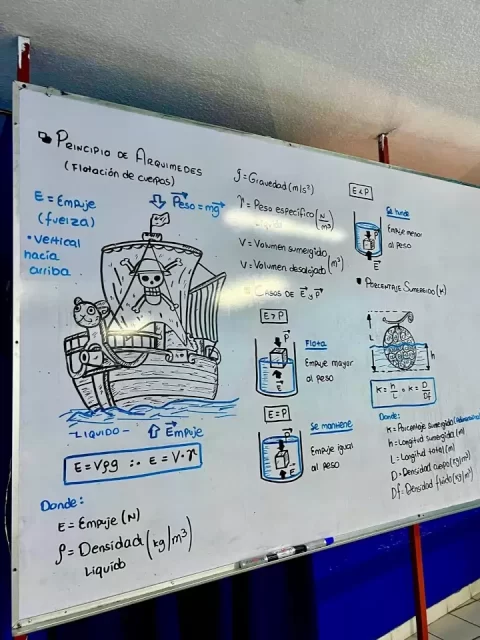 PRINCIPIO DE ARQUIMEDES
(Flotación de cuerpos)
E = Empuje
(fuerza)
• Vertical
hacia
arriba
Peso = mg
-LIQUIDO-
Empuje
E = Vρg ∴ E = V·γ
Donde:
E = Empuje (N)
ρ = Densidad (kg/m³)
Liquido
g = Gravedad (m/s²)
γ = Peso específico (N/m³)
V = Volumen sumergido
V = Volumen desalojado (m³)
CASOS DE E y P
E > P
P
E
Flota
Empuje mayor
al peso
E = P
P
E
Se mantiene
Empuje igual
al peso
E < P
P
E
Se hunde
Empuje menor
al peso
PORCENTAJE SUMERGIDO (K)
L
h
K = h/L o K = D/Df
Donde:
K = Porcentaje sumergido
h = Longitud sumergida (m)
L = Longitud total (m)
D = Densidad cuerpo (kg/m³)
Df = Densidad fluido (kg/m³)